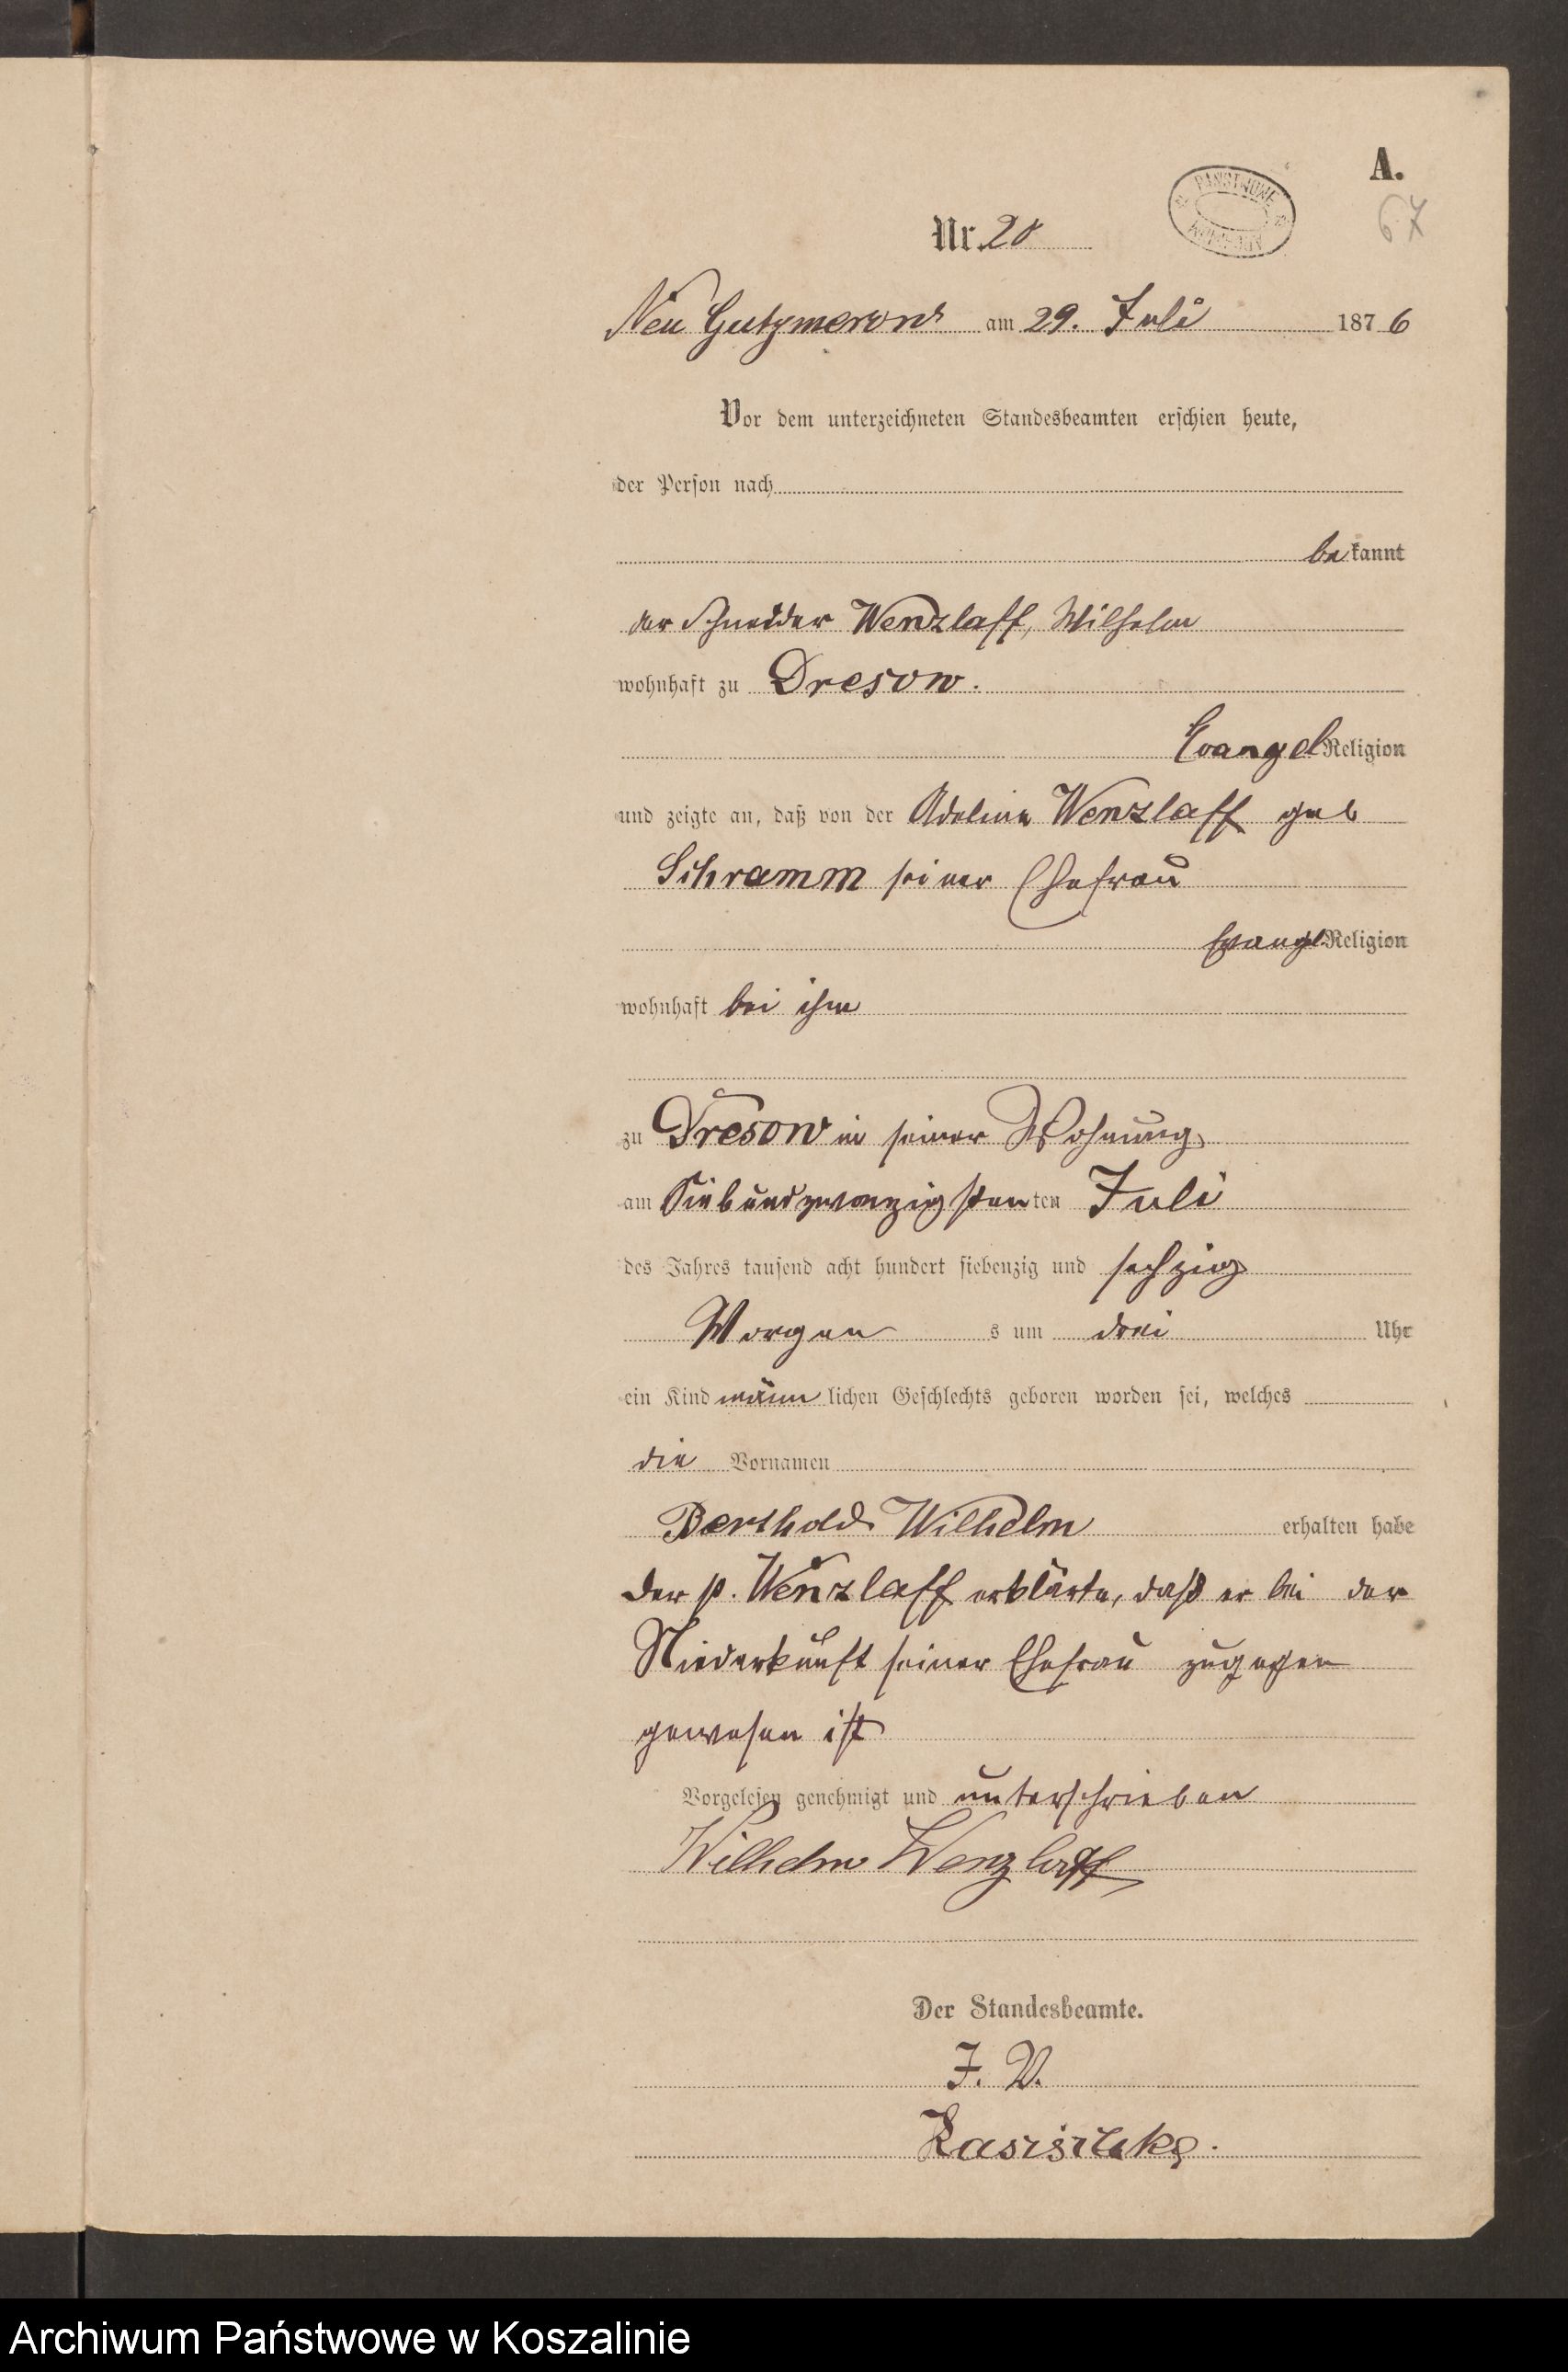 A.
67
Nr. 28
Neu Gutzmerow am 29. Juli 1876
Vor dem unterzeichneten Standesbeamten erschien heute,
der Person nach
bekannt
der Schneider Wenzlaff, Wilhelm
wohnhaft zu Dresow.
Evangel Religion
und zeigte an, daß von der Adeline Wenzlaff geb
Schramm seiner Ehefrau
Evangl Religion
wohnhaft bei ihm
zu Dresow in seiner Wohnung
am Siebundzwanzigstenten Juli
des Jahres tausend acht hundert siebenzig und sechzig
Morgens um drei Uhr
ein Kind männlichen Geschlechts geboren worden sei, welches
die Vornamen
Berthold Wilhelm erhalten habe
der p. Wenzlaff erklärte, daß er bei der
Niederkunft seiner Ehefrau zugegen
gewesen ist
Vorgelesen genehmigt und unterschrieben
Wilhelm Wenzlaff
Der Standesbeamte.
J. V.
Archiwum Państwowe w Koszalinie